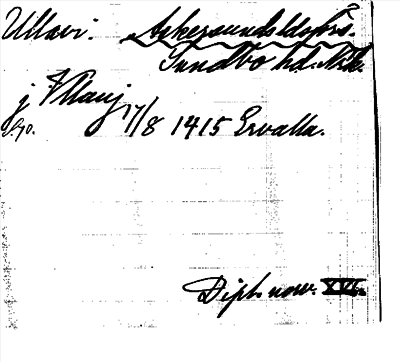 Ullavi. Askersunds ldsförs.
Sundbo hd. Närk.
j Vllauj 17/8 1415 Ervalla.
S. 70.
Dipl. norv. XVI.